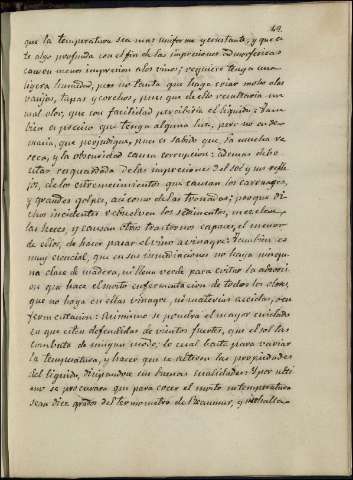 que la temperatura sea mas uniforme y constante, y que es
te algo profunda con el fin de las impresiones atmosfericas
causen menos impresion a los vinos; requiere tenga una
ligera humedad, pero no tanta que haga criar moho a las
vasijas, tapas y corchos, pues que de ello resultaria un
mal olor, que con facilidad percibiria el liquido: Tam-
bien es preciso que tenga alguna luz, pero no en de-
masia, que perjudique, pues es sabido que la mucha re
seca, y la obscuridad causa corrupcion: ademas debe
estar resguardada de las impresiones del sol y sus refle-
jos, de los estremecimientos que causan los carruages,
y grandes golpes, asi como de las tronadas; porque di-
cho incidentes revuelven los sedimentos, mezclan
las heces, y causan otros trastornos capaces, el menor
de ellos, de hacer pasar el vino a vinagre: Tambien es
muy esencial, que en sus inmediaciones no haya ningu-
na clase de madera, ni leña verde para evitar la absorci-
on que hace el mosto en fermentacion de todos los olores,
que no haya en ellas vinagre, ni materias acidas, o en
fermentacion: Asimismo se pondrá el mayor cuidado
en que esten defendidas de vientos fuertes, que el sol las
combata de ningun modo, lo cual basta para variar
la temperatura, y hacer que se alteren las propiedades
del liquido, disipandose sus buenas cualidades: Y por ulti
mo se procurara que para cocer el mosto su temperatura
sean diez grados del termometro de Reaumur, y